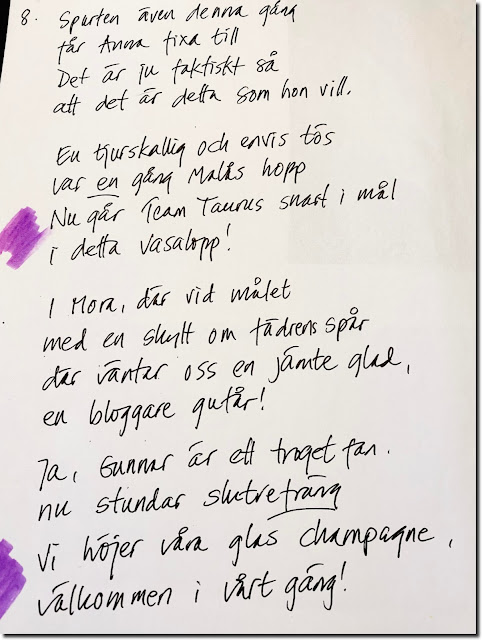 8. Spurten även denna gång
får Anna fixa till
Det är ju faktiskt så
att det är detta som hon vill.
En tjurskallig och envis tös
var en gång Malås hopp
Nu går Team Taurus snart i mål
i detta vasalopp!
I Mora, där vid målet
med en skylt om fädrens spår
där väntar oss en jämte glad,
en bloggare gutår!
Ja, Gunnar är ett troget fan.
nu stundar slutrefräng
Vi höjer våra glas champagne,
välkommen i vårt gäng!